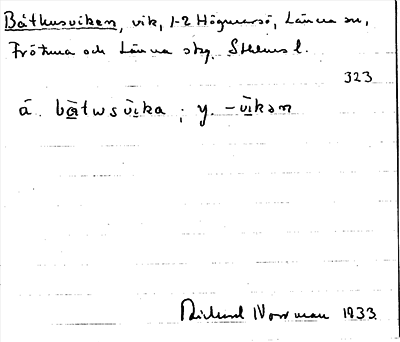 Båthusviken, vik, 1-2 Högmarsö, Länna sn,
Frötuna och Länna skg. Sthlms l.
323
ä. bàtwsvìka ; y. -vìkən
Rickard Norrman 1933.